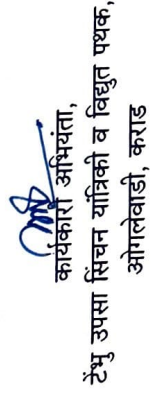 कार्यकारी अभियंता,
टेंभु उपसा सिंचन यांत्रिकी व विद्युत पथक,
ओगलेवाडी, कराड